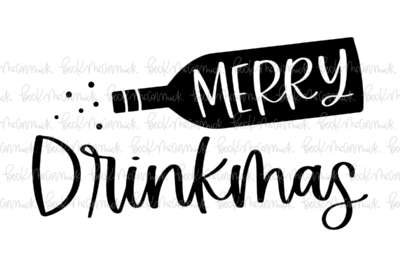 MERRY
Drinkmas